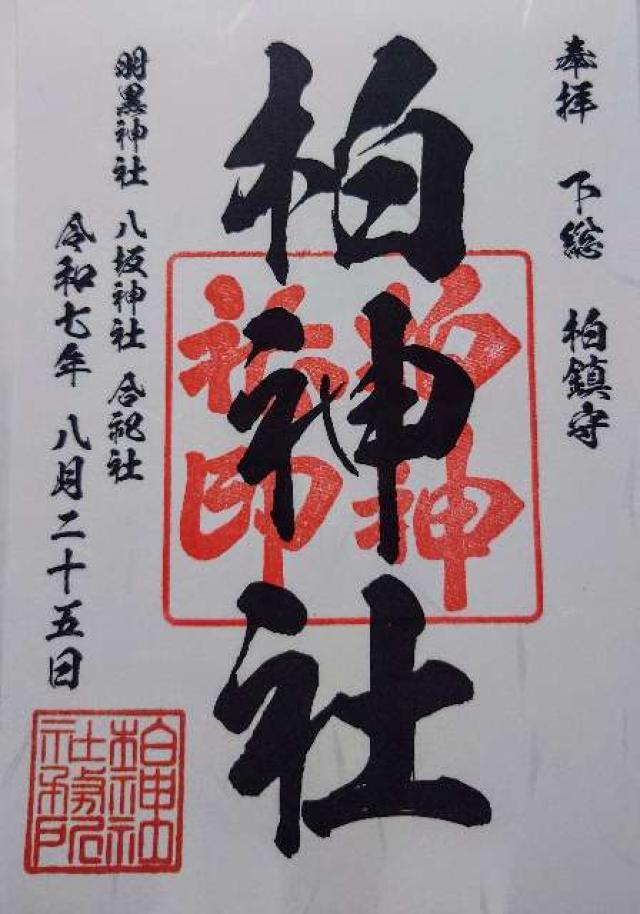 奉拝 下総 柏鎮守
柏神社
柏神
社印
羽黒神社 八坂神社 合祀社
令和七年 八月二十五日
柏神社
社務所